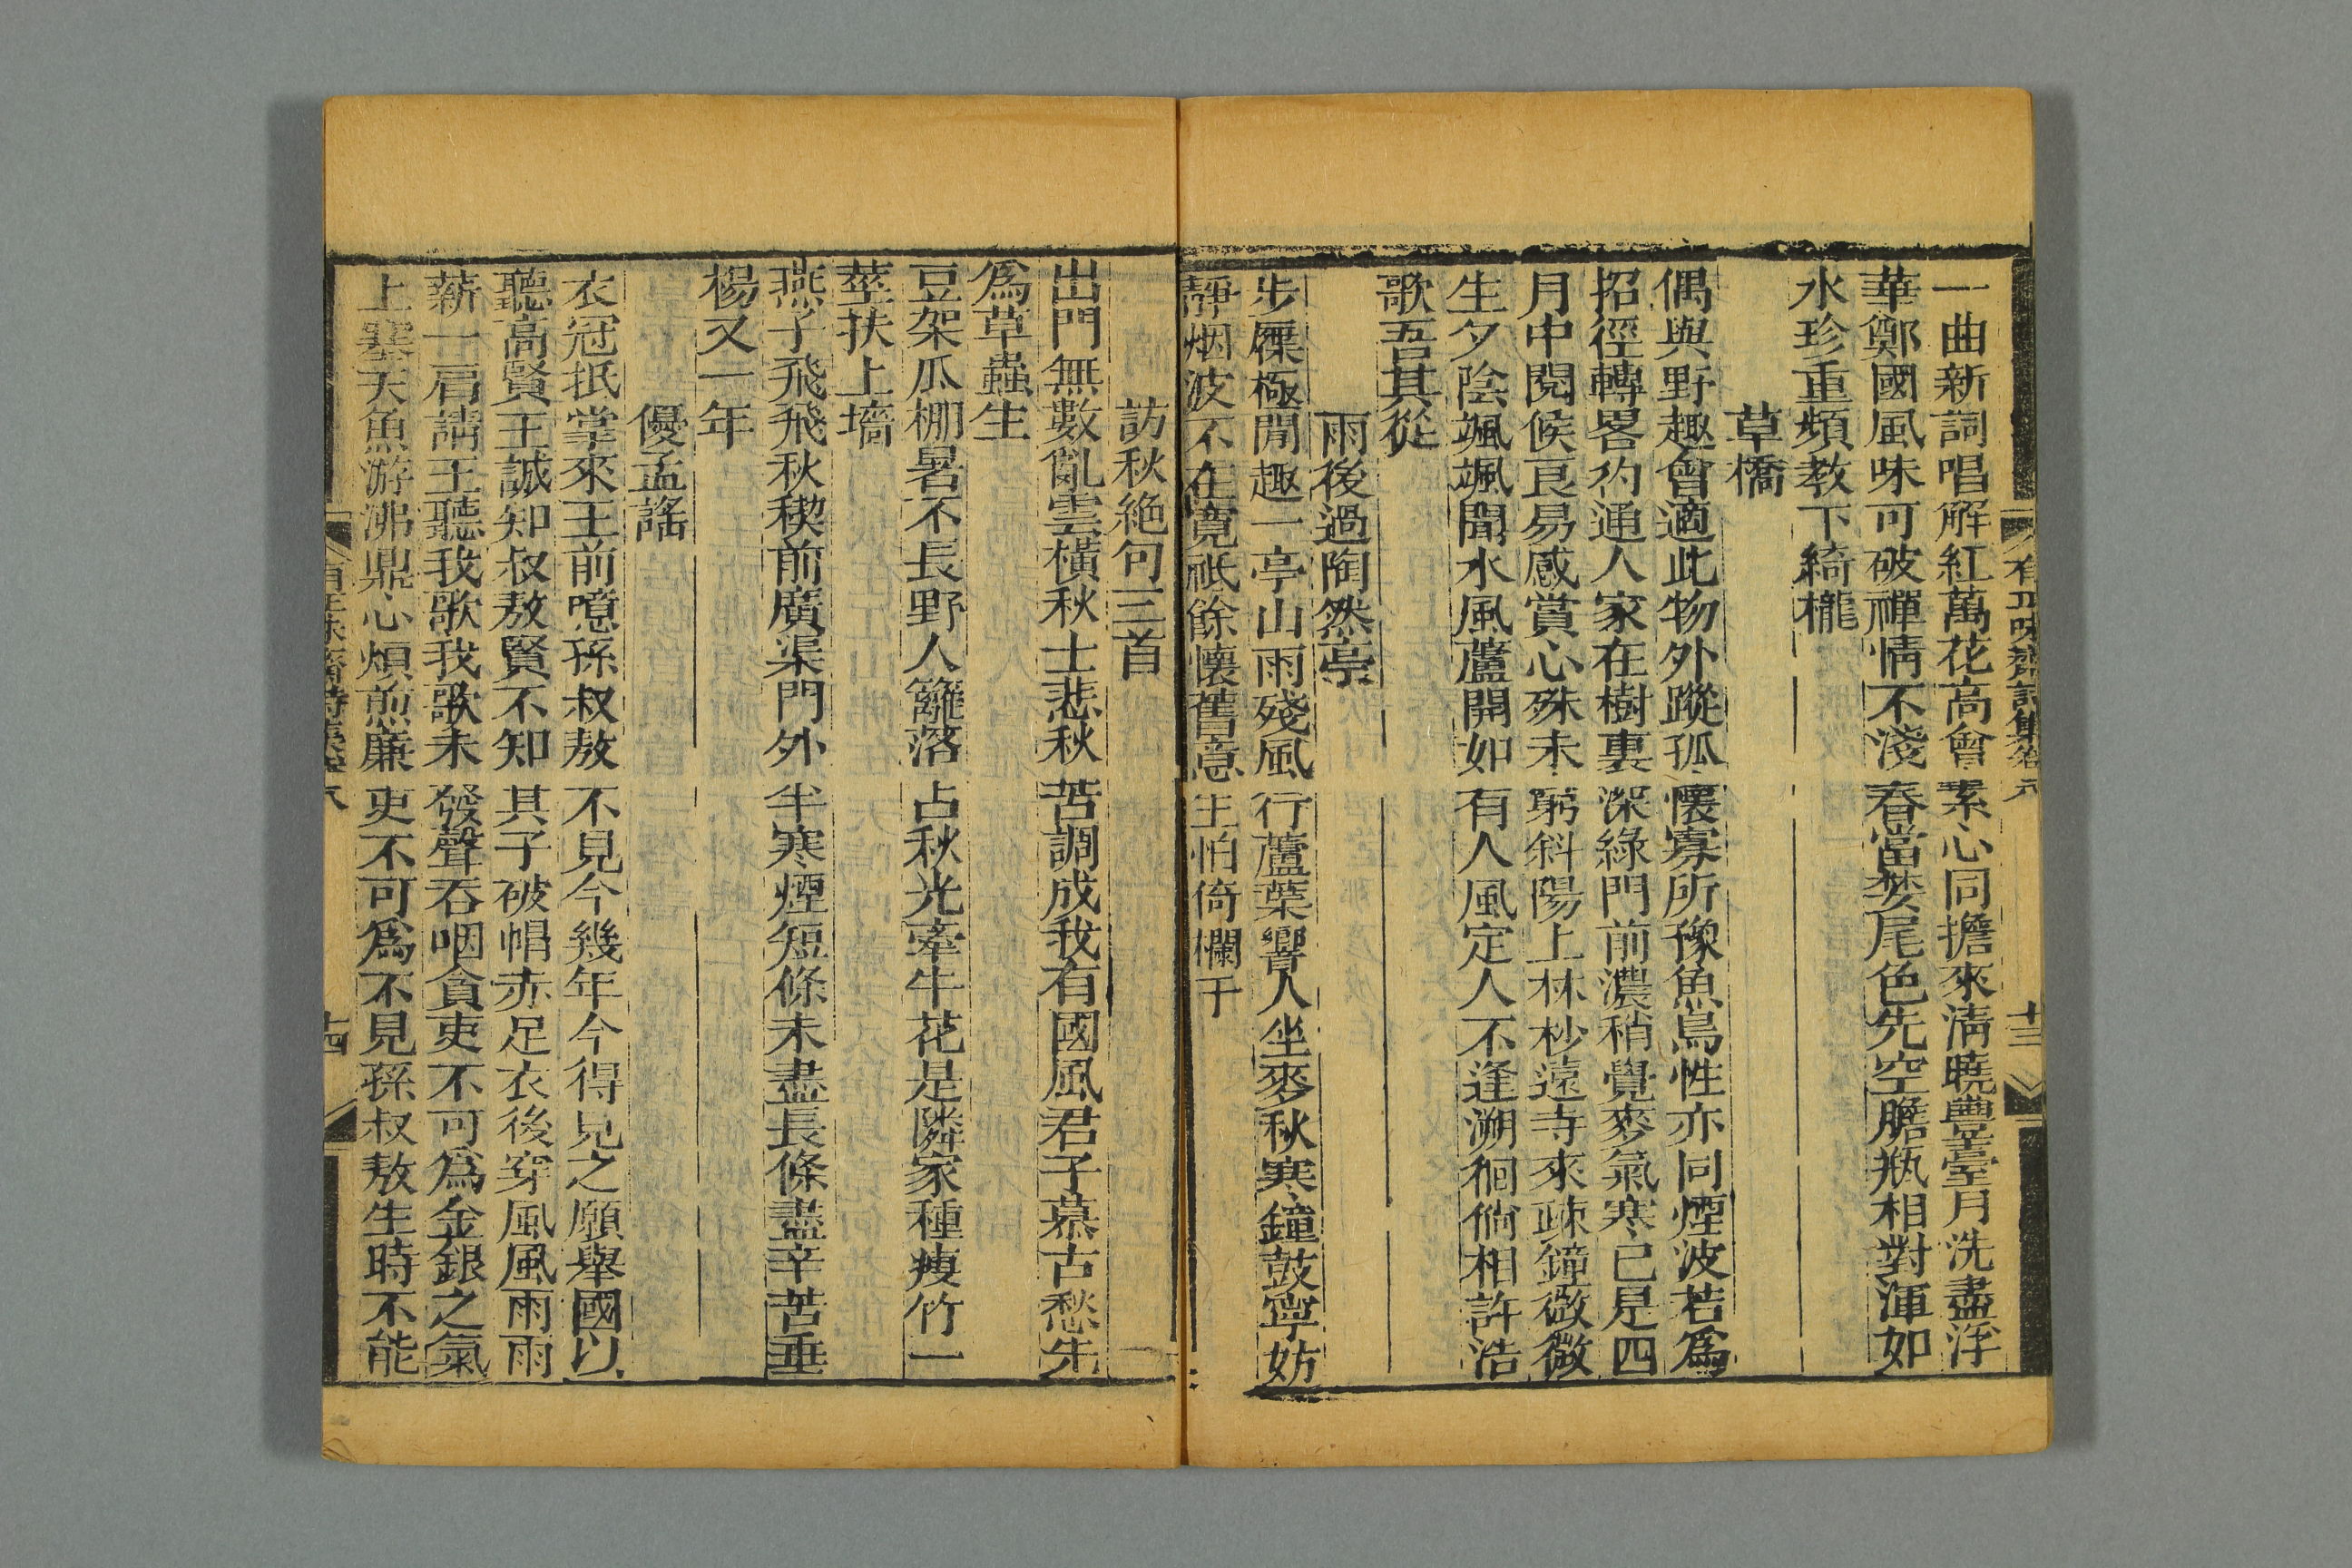 有正味齋詩集卷八
十三
一曲新詞唱解紅萬花高會素心同擔來淸曉豐臺月洗盡浮
華鄭國風味可破禪情不淺春當婪尾色先空膽瓶相對渾如
水珍重頻教下綺櫳
草橋
偶與野趣會適此物外蹤孤懷寡所豫魚鳥性亦同煙波若爲
招徑轉畧彴通人家在樹裏深綠門前濃稍覺麥氣寒已是四
月中閱候良易感賞心殊未窮斜陽上林杪遠寺來疎鐘微微
生夕陰颯颯聞水風蘆開如有人風定人不逢溯徊倘相許浩
歌吾其從
雨後過陶然亭
步屧極閒趣一亭山雨殘風行蘆葉響人坐麥秋寒鐘鼓寧妨
靜烟波不在寬祇餘懷舊意生怕倚欄干
訪秋絶句三首
出門無數亂雲橫秋士悲秋苦調成我有國風君子慕古愁先
爲草蟲生
豆架瓜棚暑不長野人籬落占秋光牽牛花是隣家種瘦竹一
莖扶上墻
燕子飛飛秋稧前廣渠門外半寒煙短條未盡長條盡辛苦垂
楊又一年
優孟謠
衣冠抵掌來王前噫孫叔敖不見今幾年今得見之願舉國以
聽高賢王誠知叔敖賢不知其子破帽赤足衣後穿風風雨雨
薪一肩請王聽我歌我歌未發聲吞咽貪吏不可爲金銀之氣
上塞天魚游沸鼎心煩煎廉吏不可爲不見孫叔敖生時不能
有正味齋詩集卷八
十四